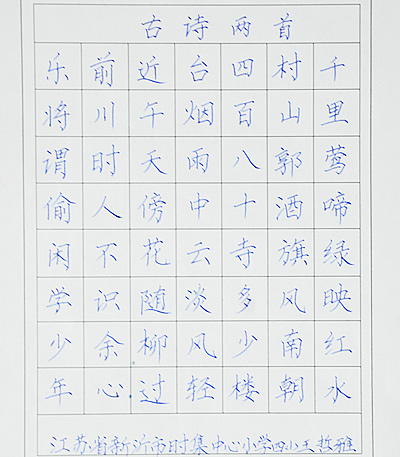 古诗两首
千里莺啼绿映红水
村山郭酒旗风南朝
四百八十寺多少楼
台烟雨中云淡风轻
近午天傍花随柳过
前川时人不识余心
乐将谓偷闲学少年
江苏省新沂市时集中心小学四 王哲雅